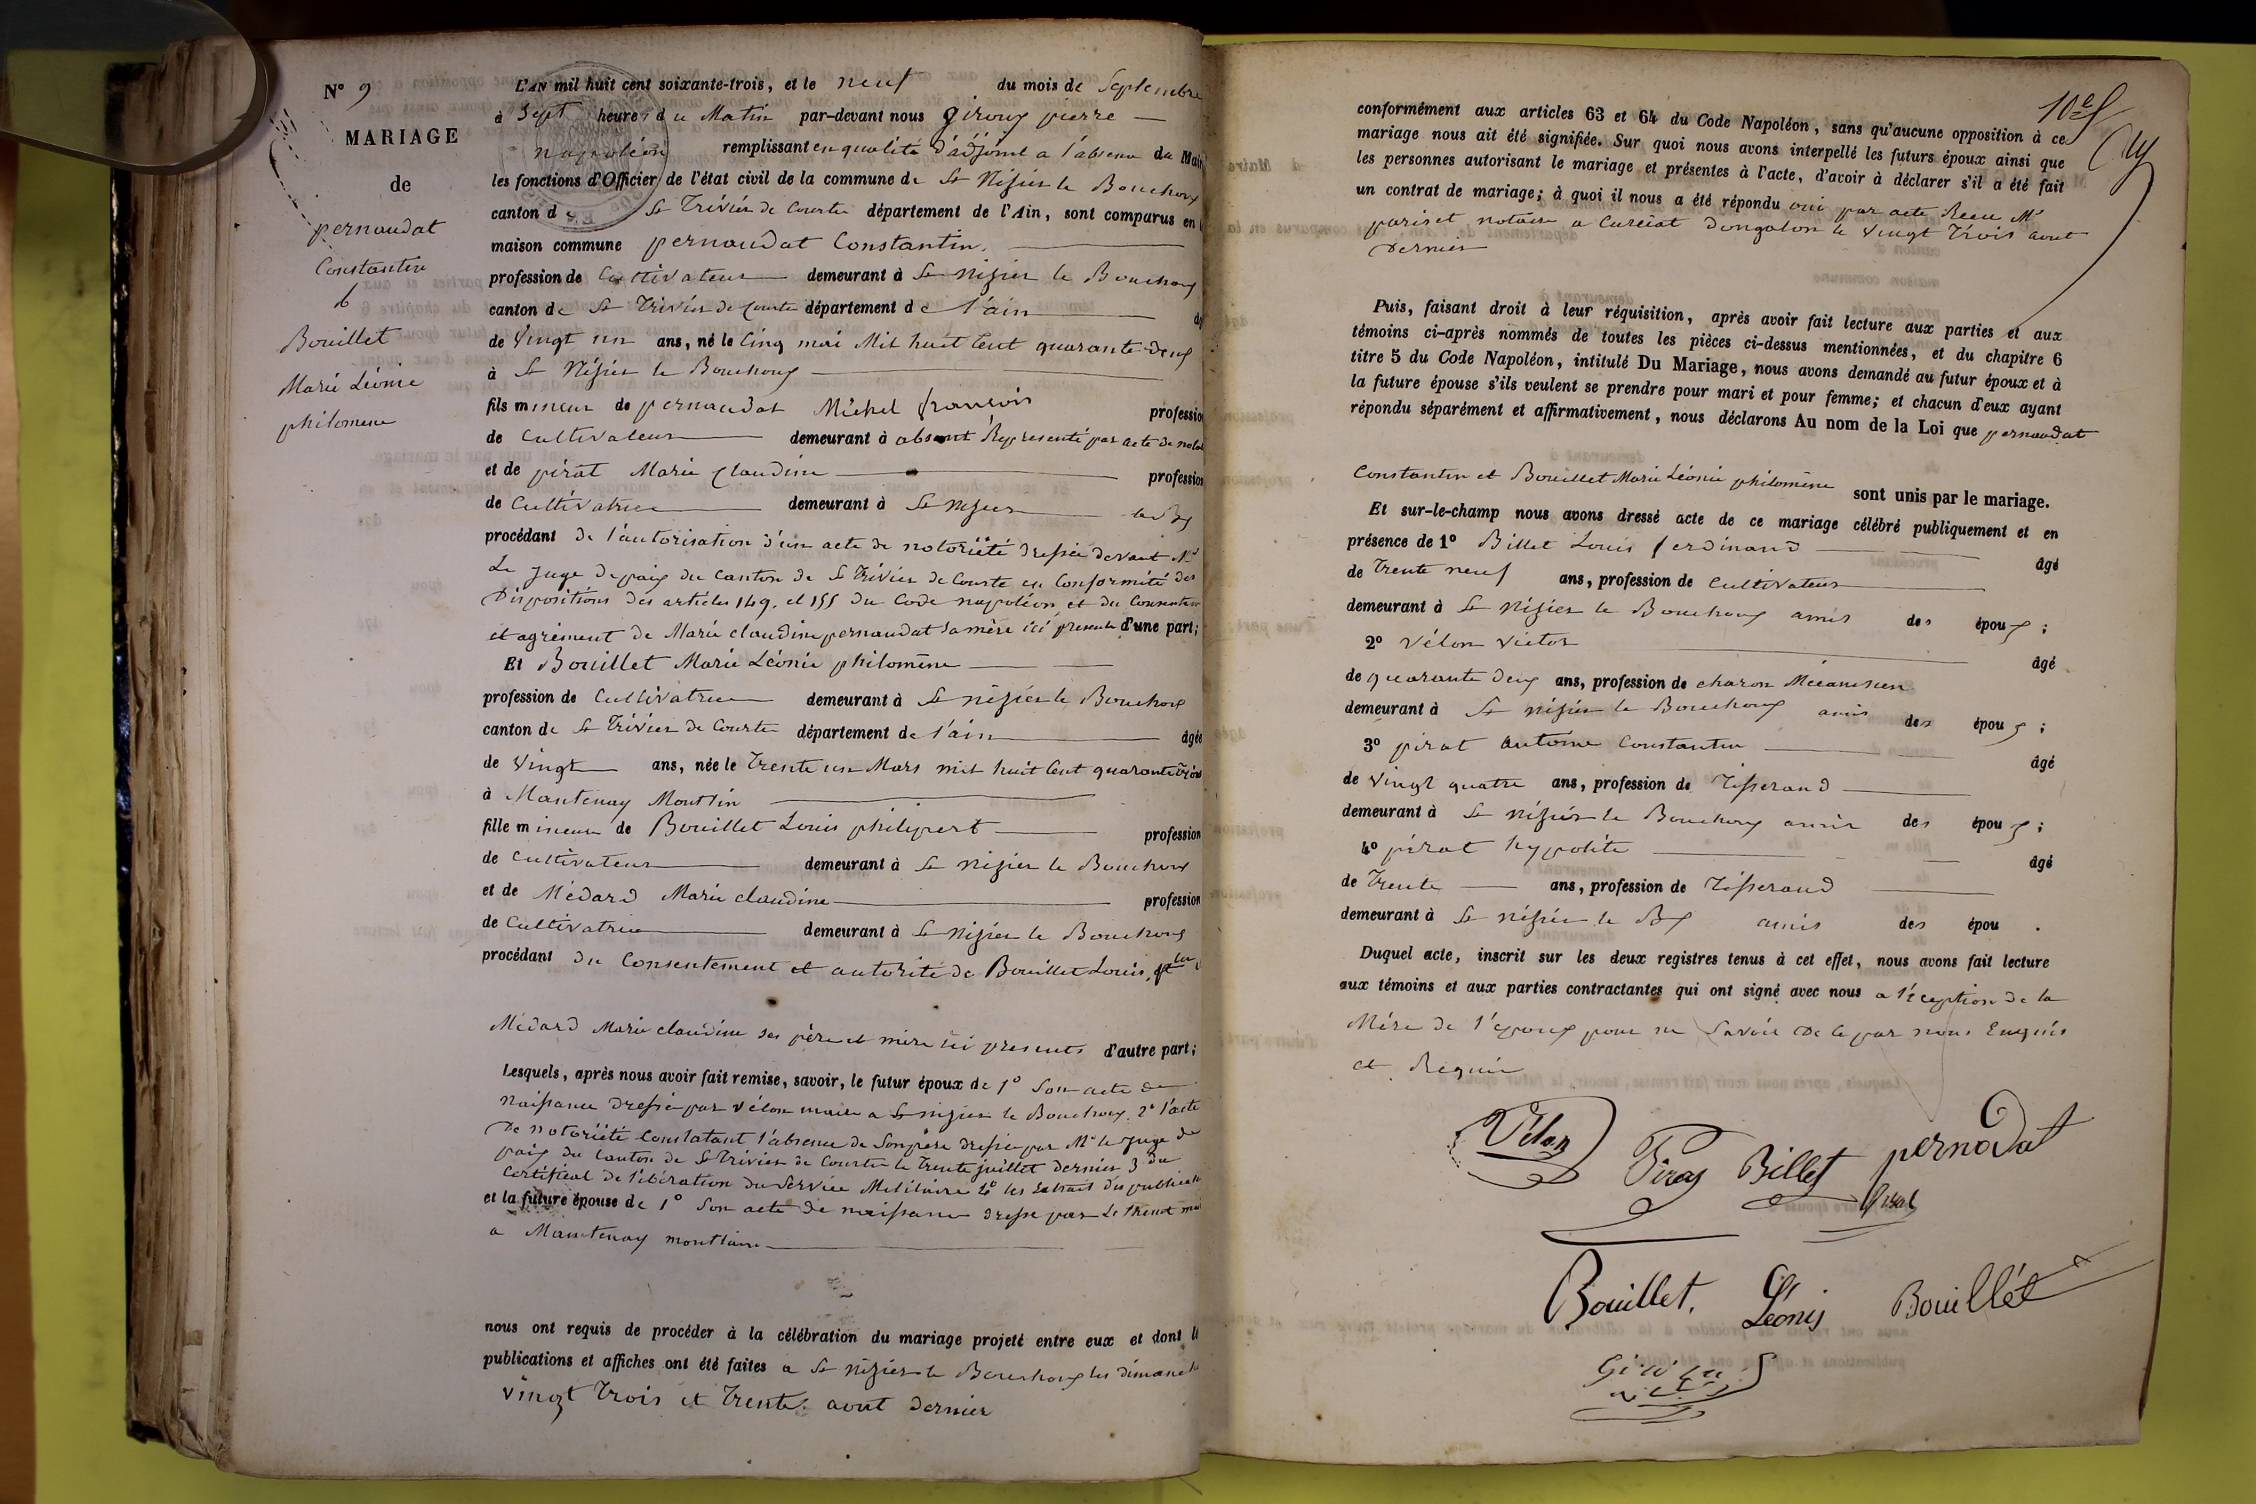 N° 9
MARIAGE
de
pernaudat
Constantin
&
Bouillet
Marie Léonie
philomene
L'AN mil huit cent soixante-trois, et le neuf du mois de Septembre
à Sept heures du Matin par-devant nous giroux pierre
napoléon remplissant en qualité d'adjoint a l'absence du Maire
les fonctions d'Officier de l'état civil de la commune de St Nizier le Bouchoux
canton de St Trivier de Courtes département de l'Ain, sont comparus en
maison commune pernaudat Constantin
profession de Cultivateur demeurant à St nizier le Bouchoux
canton de St Trivier de Courtes département de l'ain
de Vingt un ans, né le Cinq mai Mil huit Cent quarante-deux
à St Nizier le Bouchoux
fils mineur de pernaudat Michel françois profession
de Cultivateur demeurant à absent Représenté par acte de
et de pirat Marie Claudine profession
de Cultivatrice demeurant à St nizier le Bx
procédant de l'autorisation d'un acte de notoriëté dressée devant Mr
Le Juge de paix du Canton de St Trivier de Courte en Conformité des
Dispositions des articles 149. et 155 du Code napoléon et du Consentem
et agrément de Marie claudine pernaudat sa mère ici presente d'une part;
Et Bouillet Marie Léonie philomène
profession de Cultivatrice demeurant à St nizier le Bouchoux
canton de St Trivier de Courtes département de l'ain âgée
de Vingt ans, née le Trente un Mars mil huit Cent quarante Trois
à Mantenay Montlin
fille mineure de Bouillet Louis philipert profession
de Cultivateur demeurant à St nizier le Bouchoux
et de Médard Marie claudine profession
de Cultivatrice demeurant à St nizier le Bouchoux
procédant du Consentement et autorité de Bouillet Louis,
Médard Marie claudine ses père et mère ici presents d'autre part;
Lesquels, après nous avoir fait remise, savoir, le futur époux de 1° Son acte de
Naissance Dressé par Vélon maire a St nizier le Bouchoux. 2° l'acte
De notoriëté Constatant l'absence de Son père dressé par Mr le Juge de
paix du Canton de St Trivier de Courtes le Trente juillet dernier 3 du
Certificat de libération du Service Militaire 4° les Extrait des publicat
et la future épouse de 1° Son acte de naissance dressé par
a Mantenay montlain
nous ont requis de procéder à la célébration du mariage projeté entre eux et dont
publications et affiches ont été faites a St nizier le Bouchoux les dimanche
Vingt Trois et Trente aout dernier
10e
conformément aux articles 63 et 64 du Code Napoléon, sans qu'aucune opposition à ce
mariage nous ait été signifiée. Sur quoi nous avons interpellé les futurs époux ainsi que
les personnes autorisant le mariage et présentes à l'acte, d'avoir à déclarer s'il a été fait
un contrat de mariage; à quoi il nous a été répondu oui par acte Recu Mr
pariset notaire a Curciat dongalon le Vingt Trois aout
Dernier
Puis, faisant droit à leur réquisition, après avoir fait lecture aux parties et aux
témoins ci-après nommés de toutes les pièces ci-dessus mentionnées, et du chapitre 6
titre 5 du Code Napoléon, intitulé Du Mariage, nous avons demandé au futur époux et à
la future épouse s'ils veulent se prendre pour mari et pour femme; et chacun d'eux ayant
répondu séparément et affirmativement, nous déclarons Au nom de la Loi que pernaudat
Constantin et Bouillet Marie Léonie philomène sont unis par le mariage.
Et sur-le-champ nous avons dressé acte de ce mariage célébré publiquement et en
présence de 1° Billet Louis ferdinand âgé
de Trente neuf ans, profession de Cultivateur
demeurant à St nizier le Bouchoux amis des époux;
2° Vélon Victor âgé
de quarante deux ans, profession de charon Mécanicien
demeurant à St nizier le Bouchoux amis des époux;
3° pirat Antoine Constantin âgé
de Vingt quatre ans, profession de Tisserand
demeurant à St nizier le Bouchoux amis des époux;
4° pirat hypolite âgé
de Trente ans, profession de Tisserand
demeurant à St nizier le Bx amis des épou.
Duquel acte, inscrit sur les deux registres tenus à cet effet, nous avons fait lecture
aux témoins et aux parties contractantes qui ont signé avec nous a l'éception de la
Mère de l'epoux pour ne Savoir De ce par nous Enquis
et Requis
Vélon Pirat Billet pernodat
Pirat
Bouillet. Léonis Bouillét
Giroux